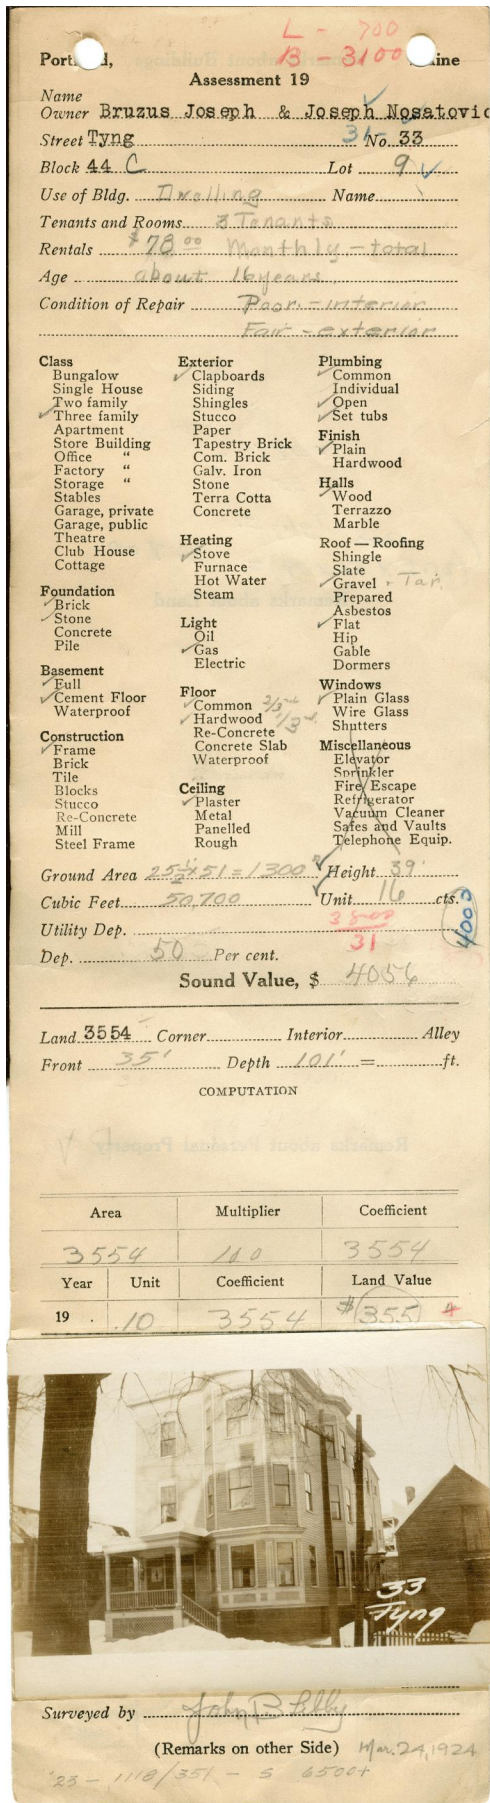 L - 700
B - 3100
Port d, ine
Assessment 19
Name
Owner Bruzus Joseph & Joseph Nosatovic
Street Tyng 31- No. 33
Block 44 C Lot 9
Use of Bldg. Dwelling Name
Tenants and Rooms 3 Tenants
Rentals $78.00 Monthly - total
Age about 16 years,
Condition of Repair Poor - interior
Fair - exterior
Class
Bungalow
Single House
Two family
✓ Three family
Apartment
Store Building
Office "
Factory "
Storage "
Stables
Garage, private
Garage, public
Theatre
Club House
Cottage
Foundation
✓ Brick
✓ Stone
Concrete
Pile
Basement
✓ Full
✓ Cement Floor
Waterproof
Construction
✓ Frame
Brick
Tile
Blocks
Stucco
Re-Concrete
Mill
Steel Frame
Exterior
✓ Clapboards
Siding
Shingles
Stucco
Paper
Tapestry Brick
Com. Brick
Galv. Iron
Stone
Terra Cotta
Concrete
Heating
✓ Stove
Furnace
Hot Water
Steam
Light
Oil
✓ Gas
Electric
Floor
✓ Common 2/3rd
✓ Hardwood 1/3rd.
Re-Concrete
Concrete Slab
Waterproof
Ceiling
✓ Plaster
Metal
Panelled
Rough
Plumbing
✓ Common
Individual
✓ Open
✓ Set tubs
Finish
✓ Plain
Hardwood
Halls
✓ Wood
Terrazzo
Marble
Roof — Roofing
Shingle
Slate
✓ Gravel - Tar.
Prepared
Asbestos
✓ Flat
Hip
Gable
Dormers
Windows
✓ Plain Glass
Wire Glass
Shutters
Miscellaneous
Elevator
Sprinkler
Fire Escape
Refrigerator
Vacuum Cleaner
Safes and Vaults
Telephone Equip.
Ground Area 25½ x 51 = 1300 ✓ Height 39'
Cubic Feet 50,700 ✓ Unit 16 cts.
4003
Utility Dep. 3800
31
Dep. 50 Per cent.
Sound Value, $ 4056
Land 3554 Corner Interior Alley
Front 35' Depth 101' = ft.
COMPUTATION
Area Multiplier Coefficient
3554 100 3554
Year Unit Coefficient Land Value
19 . .10 3554 $355
33
Tyng
Surveyed by John B
(Remarks on other Side) Mar. 24, 1924
'23 - 1118/351 - S 6500+